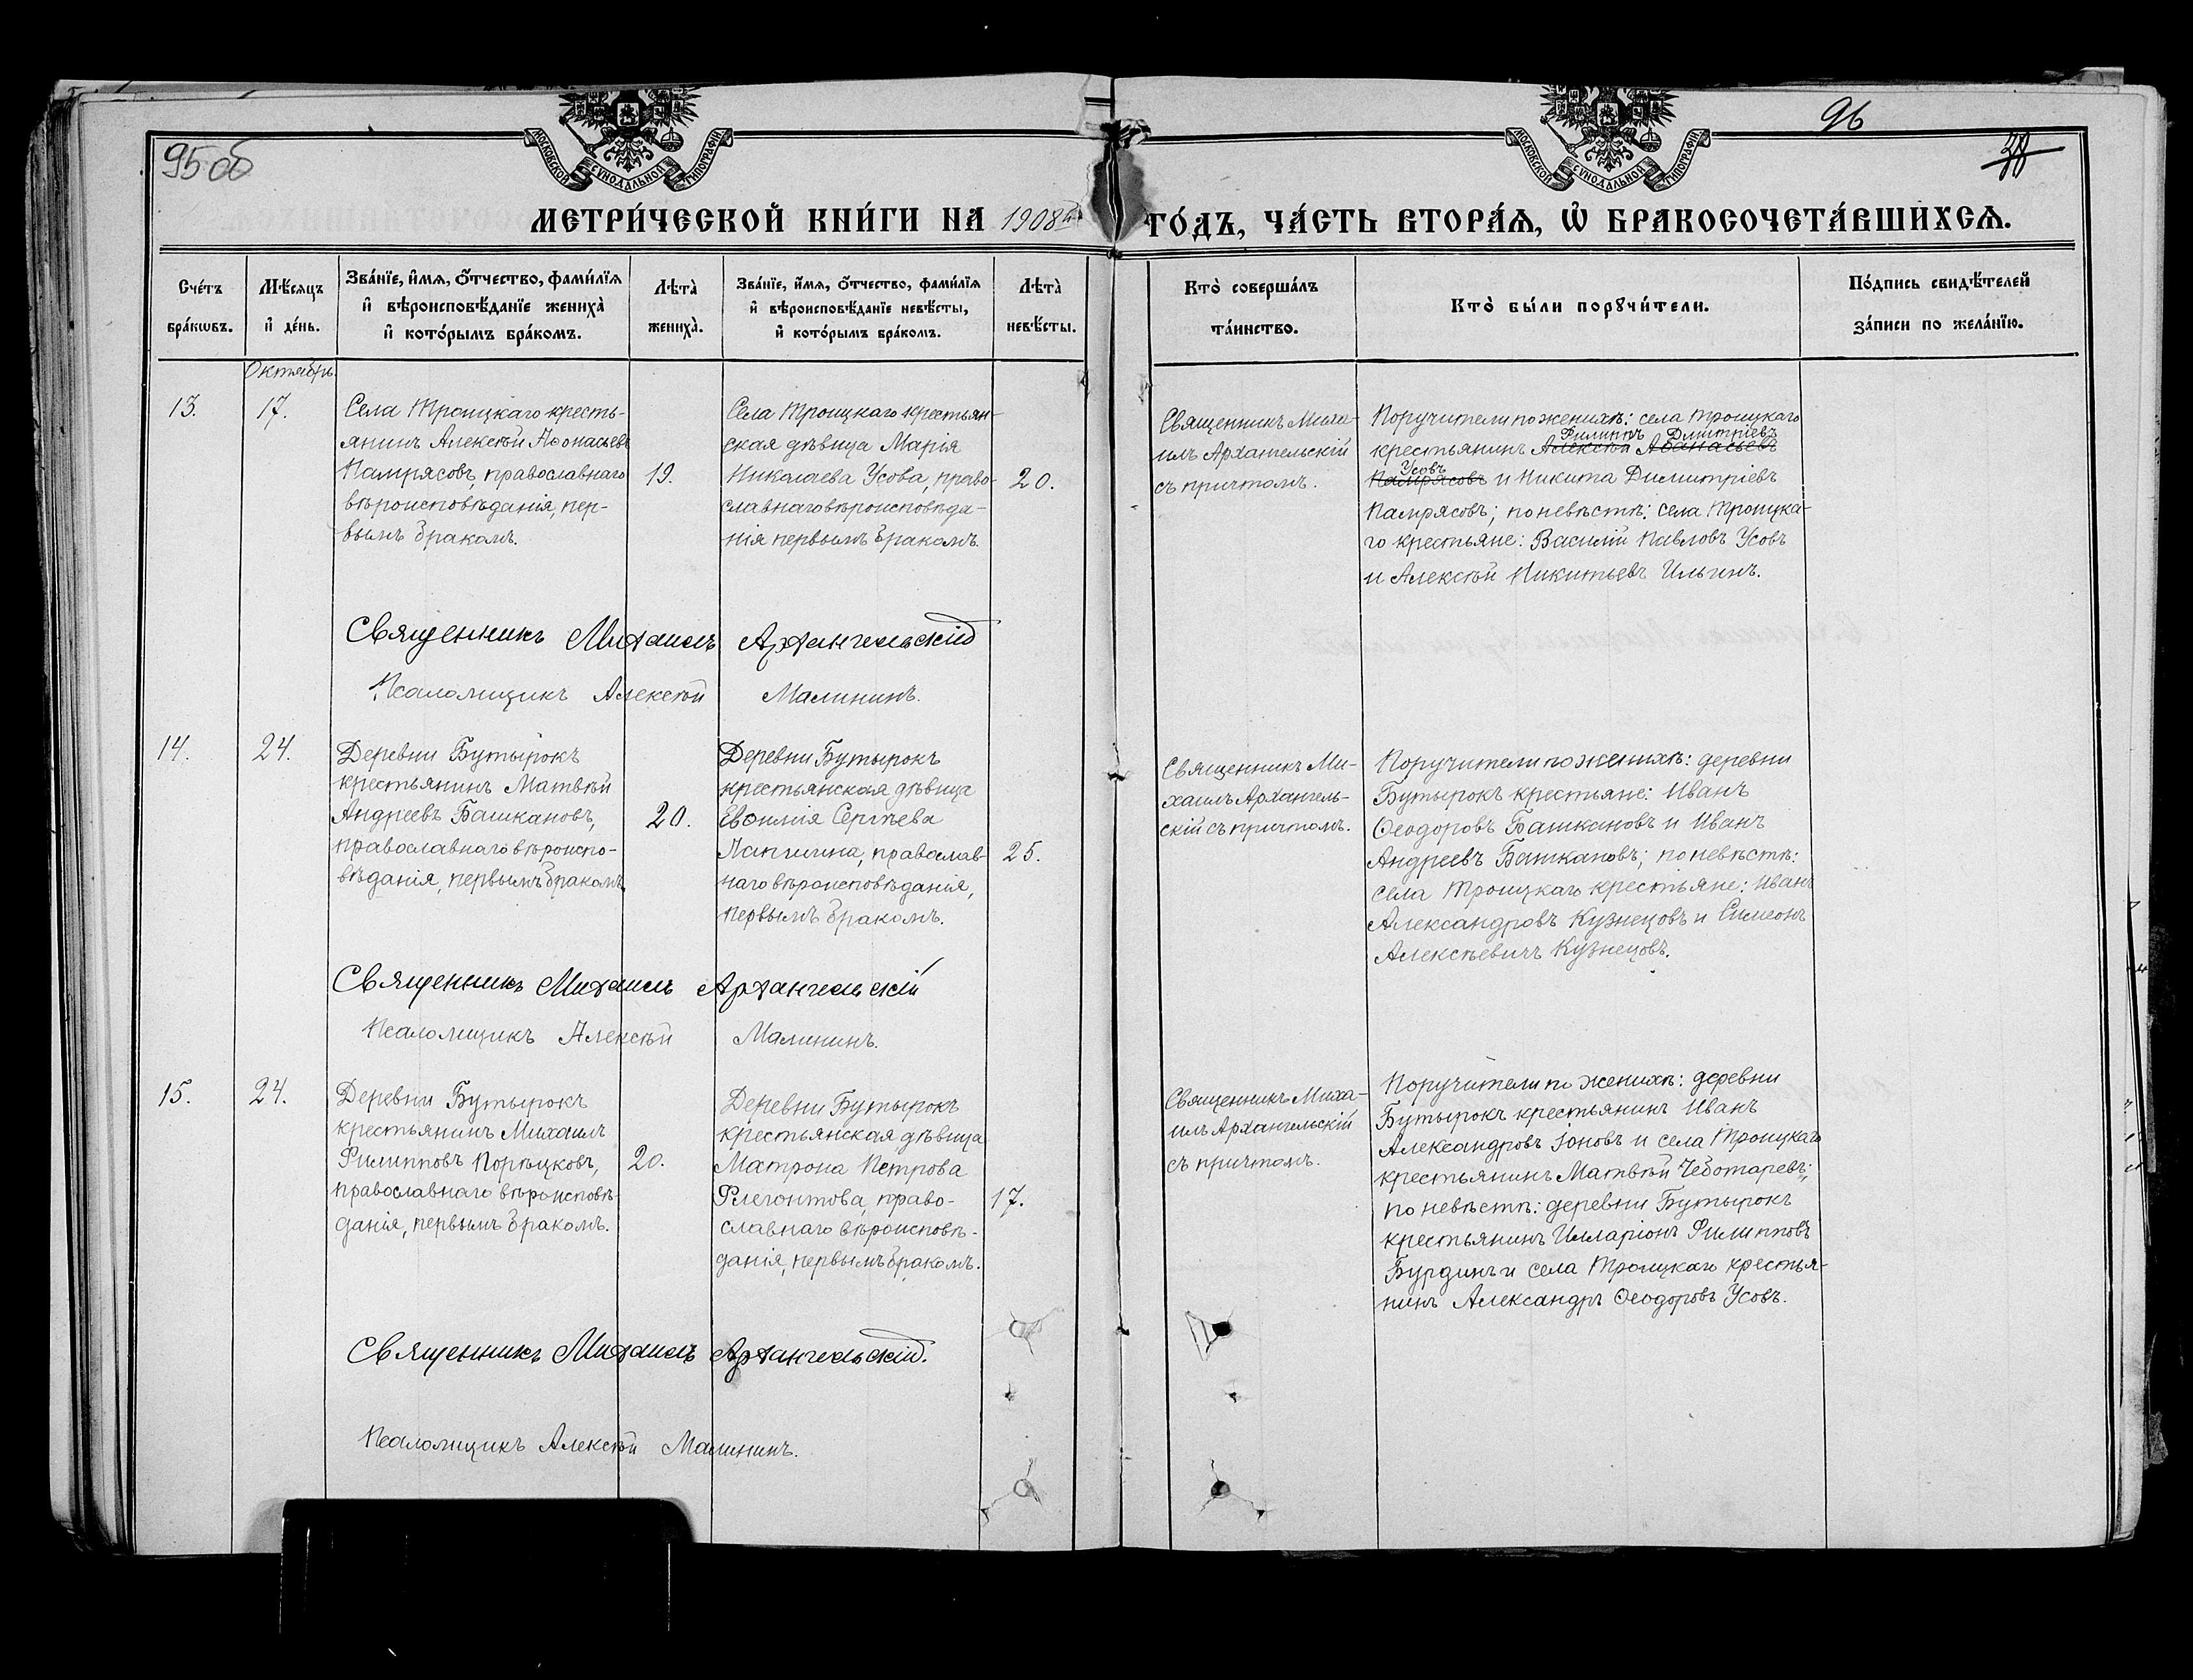 95 об
96
38
МОСКОВСКОЙ СѴНОДАЛЬНОЙ ТИПОГРАФІИ
МОСКОВСКОЙ СѴНОДАЛЬНОЙ ТИПОГРАФІИ
МЕТРИ́ЧЕСКОЙ КНИ́ГИ НА 1908й ГО́ДЪ, ЧА́СТЬ ВТОРА́Ѧ, Ѽ БРАКОСОЧЕТА́ВШИХСѦ.
Сче́тъ
бра́кѡвъ.
Мѣ́сяцъ
и҆ де́нь.
Зва́нїе, и҆́мя, ѻ҆́тчество, фами́лїя
и҆ вѣроисповѣ́данїе жениха̀
и҆ кото́рымъ бра́комъ.
Лѣта̀
жениха̀.
Зва́нїе, и҆́мя, ѻ҆́тчество, фами́лїя
и҆ вѣроисповѣ́данїе невѣ́сты,
и҆ кото́рымъ бра́комъ.
Лѣта̀
невѣ́сты.
Кто̀ соверша́лъ
та́инство.
Кто̀ бы́ли порꙋчи́тели.
По́дпись свидѣ́телей
за́писи по жела́нїю.
Октябрь
13.
17.
Села Троицкаго кресть-
янинъ Алексѣй Аѳонасьевъ
Памрясовъ, православнаго
вѣроисповѣданія, пер-
вымъ бракомъ.
19.
Села Троицкаго крестьян-
ская дѣвица Марія
Николаева Усова, право-
славнаго вѣроисповѣда-
нія первымъ бракомъ.
20.
Священникъ Миха-
илъ Архангельскій
съ причтомъ.
Поручители по женихѣ: села Троицкаго
Филиппъ Дмитріевъ
крестьянинъ Алексѣй Аѳанасьевъ
Усовъ
Памрясовъ и Никита Димитріевъ
Памрясовъ; по невѣстѣ: села Троицка-
го крестьяне: Василій Павловъ Усовъ
и Алексѣй Никитьевъ Ильинъ.
Священникъ Михаилъ Архангельскій
Псаломщикъ Алексѣй Малининъ.
14.
24.
Деревни Бутырокъ
крестьянинъ Матвѣй
Андреевъ Башкановъ,
православнаго вѣроиспо-
вѣданія, первымъ бракомъ.
20.
Деревни Бутырокъ
крестьянская дѣвица
Евѳимія Сергѣева
Лапшина, православ-
наго вѣроисповѣданія,
первымъ бракомъ.
25.
Священникъ Ми-
хаилъ Архангель-
скій съ причтомъ.
Поручители по женихѣ: деревни
Бутырокъ крестьяне: Иванъ
Ѳеодоровъ Башкановъ и Иванъ
Андреевъ Башкановъ; по невѣстѣ:
села Троицкаго крестьяне: Иванъ
Александровъ Кузнецовъ и Симеонъ
Алексѣевичъ Кузнецовъ.
Священникъ Михаилъ Архангельскій
Псаломщикъ Алексѣй Малининъ.
15.
24.
Деревни Бутырокъ
крестьянинъ Михаилъ
Филипповъ Порѣцковъ,
православнаго вѣроисповѣ-
данія, первымъ бракомъ.
20.
Деревни Бутырокъ
крестьянская дѣвица
Матрона Петрова
Флегонтова, право-
славнаго вѣроисповѣ-
данія, первымъ бракомъ.
17.
Священникъ Миха-
илъ Архангельскій
съ причтомъ.
Поручители по женихѣ: деревни
Бутырокъ крестьянинъ Иванъ
Александровъ Іоновъ и села Троицкаго
крестьянинъ Матвѣй Чеботаревъ;
по невѣстѣ: деревни Бутырокъ
крестьянинъ Илларіонъ Филипповъ
Бурдинъ и села Троицкаго крестья-
нинъ Александръ Ѳеодоровъ Усовъ.
Священникъ Михаилъ Архангельскій.
Псаломщикъ Алексѣй Малининъ.